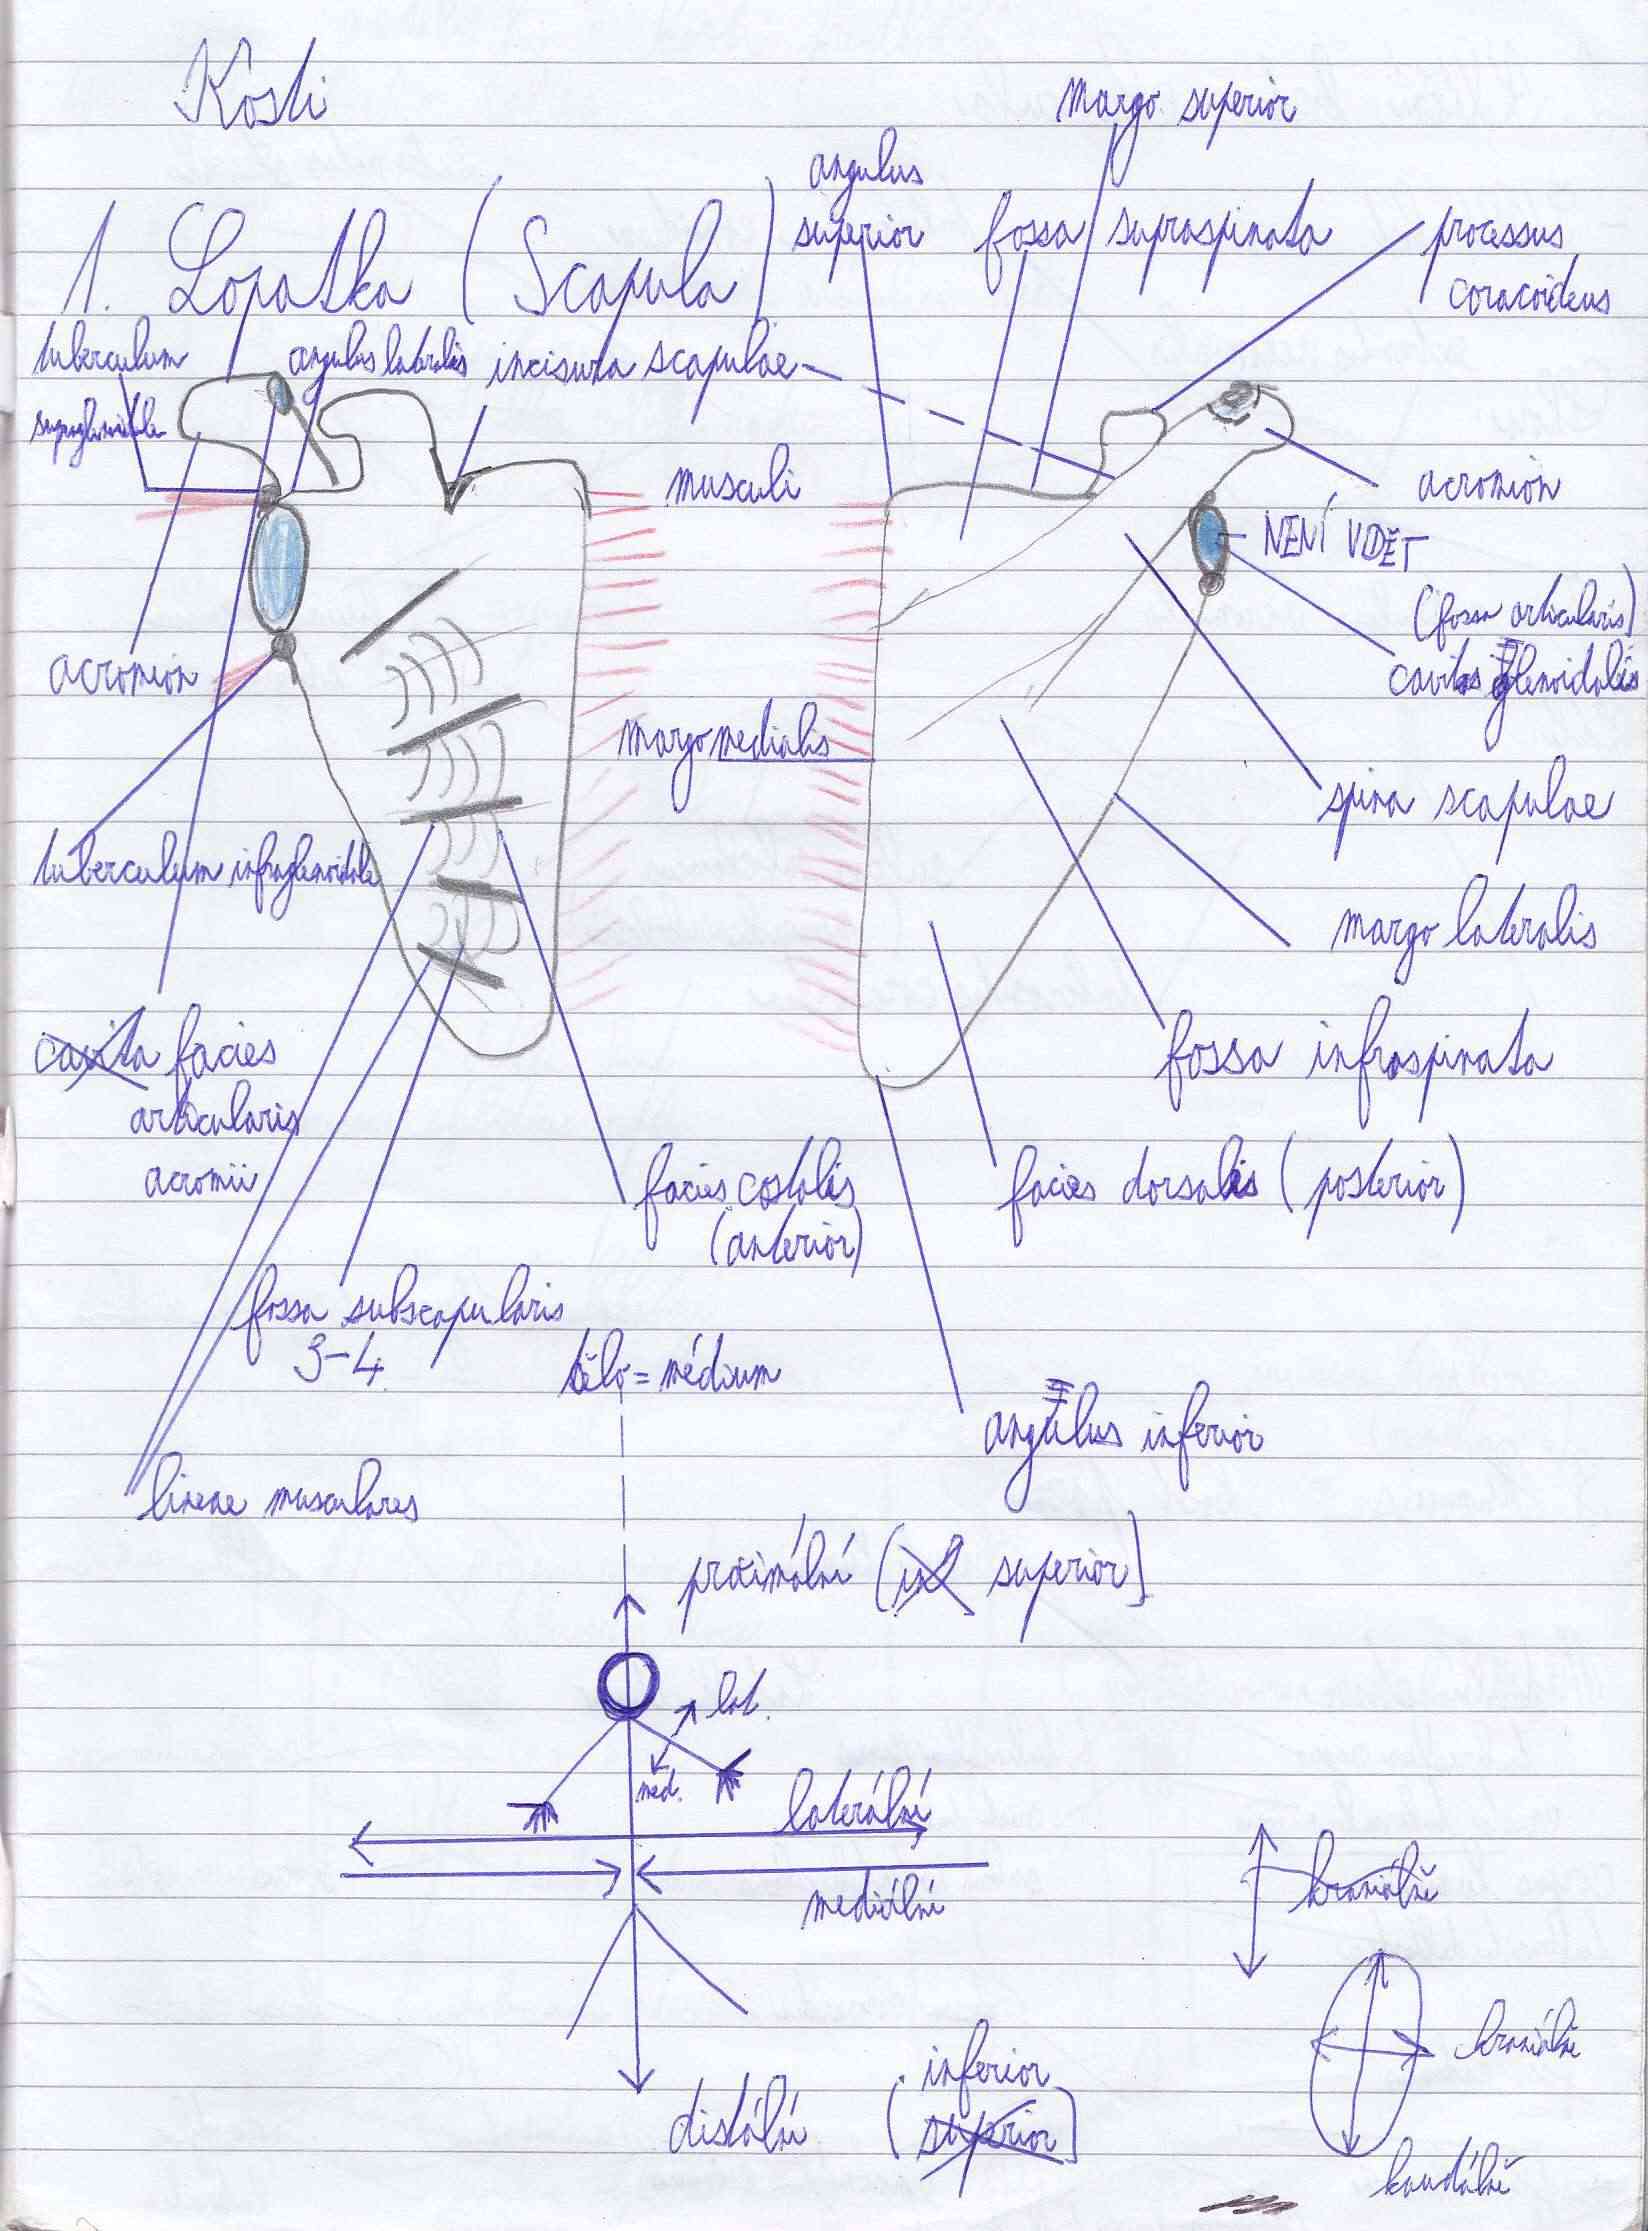 Kosti
1. Lopatka (Scapula)
margo superior
angulus
superior
fossa supraspinata
processus
coracoideus
tuberculum
supraglenoidale
angulus lateralis
incisura scapulae
musculi
acromion
NENÍ VIDĚT
(fossa articularis)
cavitas glenoidalis
acromion
margo medialis
spina scapulae
tuberculum infraglenoidale
margo lateralis
cavita facies
articularis
acromii
fossa infraspinata
facies costalis
(anterior)
facies dorsalis (posterior)
fossa subscapularis
3-4
tělo = médium
angulus inferior
lineae musculares
proximální (inf superior)
lat.
med.
laterální
mediální
kraniálně
kraniálně
kaudálně
distální
(inferior
superior)